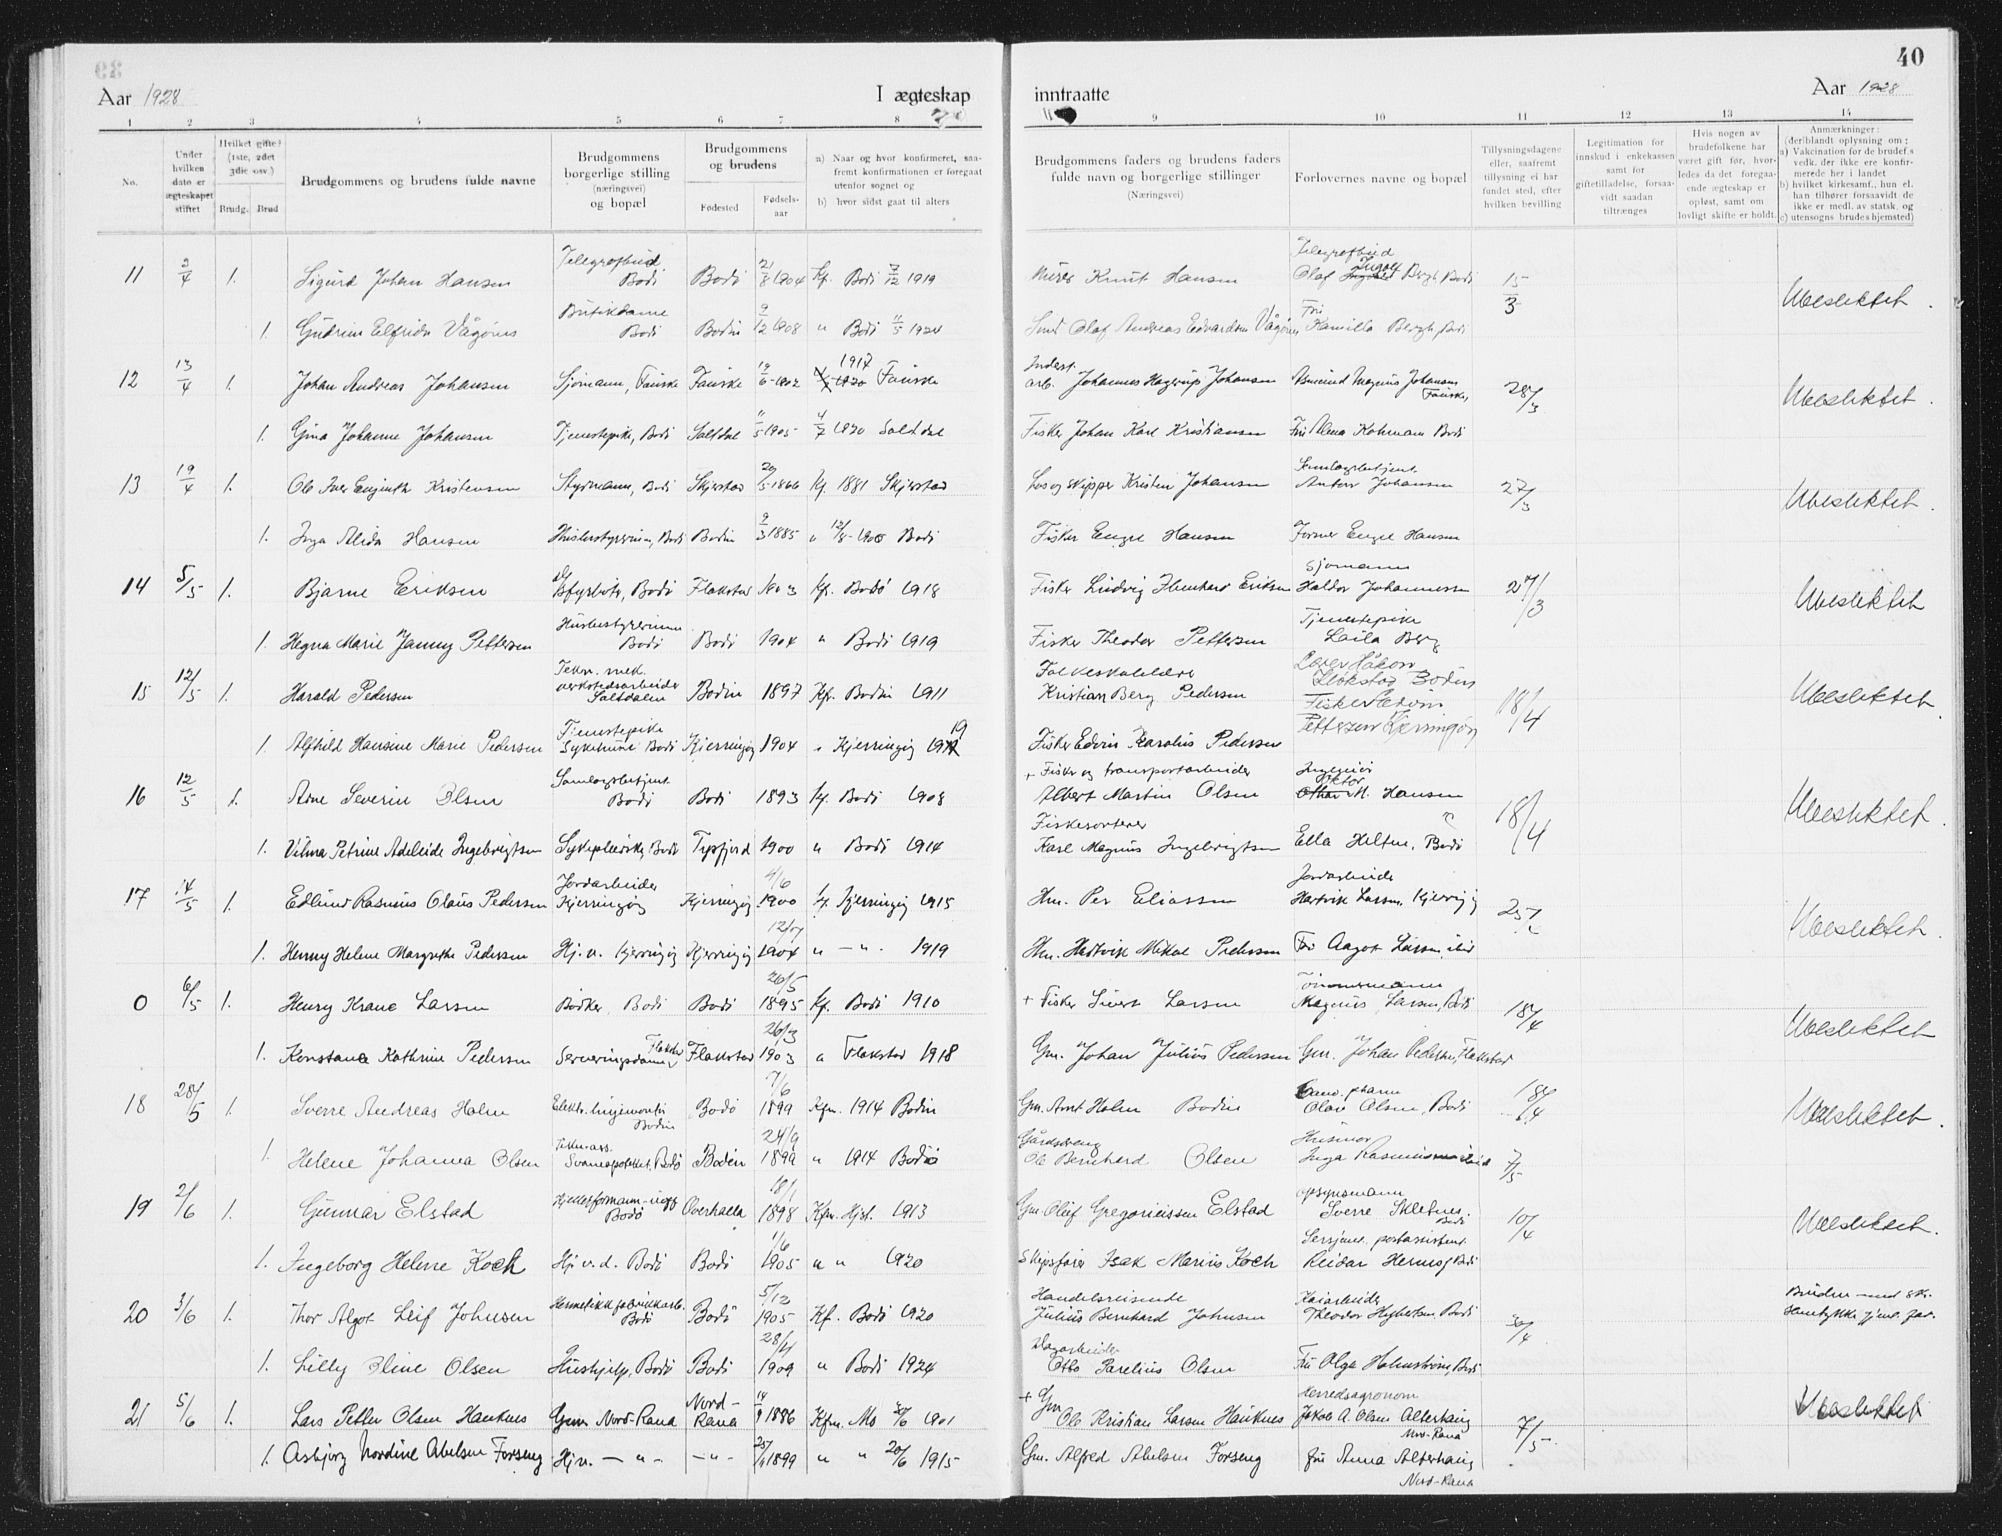 40
Aar 1928 I ægteskap
inntraatte Aar 1928
1 2 3 4 5 6 7 8 9 10 11 12 13 14
No.
Under hvilken dato er ægteskapet stiftet
Hvilket gifte? (1ste, 2det 3die osv.)
Brudg. Brud
Brudgommens og brudens fulde navne
Brudgommens borgerlige stilling (næringsvei) og bopæl
Brudgommens og brudens
Fødested Fødsels-aar
a) Naar og hvor konfirmeret, saafremt konfirmationen er foregaat utenfor sognet og
b) hvor sidst gaat til alters
Brudgommens faders og brudens faders fulde navn og borgerlige stillinger (Næringsvei)
Forlovernes navne og bopæl
Tillysningsdagene eller, saafremt tillysning ei har fundet sted, efter hvilken bevilling
Legitimation for innskud i enkekassen samt for giftetilladelse, forsaavidt saadan tiltrænges
Hvis nogen av brudefolkene har været gift før, hvorledes da det foregaaende ægteskap er opløst, samt om lovligt skifte er holdt.
Anmærkninger: (deriblandt oplysning om:
a) Vakcination for de brudef.s vedk. der ikke ere konfirmerede her i landet
b) hvilket kirkesamf., hun el. han tilhører forsaavidt de ikke er medl. av statsk. og
c) utensogns brudes hjemsted)
11 2/4 1. Sigurd Johan Hansen Telegrafbud. Bodø Bodø 21/8 1904 Kf. Bodø 7/12 1919 Murer Knut Hansen Telegrafbud Olaf Ingolf Bergh, Bodø 15/3 Ubeslektet.
1. Gudrun Elfrida Vågønes Butikdame Bodø Bodin 9/12 1908 " Bodø 11/5 1924 Smed Olaf Andreas Edvardsen Vågønes Fru Kamilla Bergh, Bodø
12 13/4 1. Johan Andreas Johansen Sjømann, Fauske Fauske 19/6-1902 1917 Fauske Indust. arb. Johannes Hagerup Johansen Asmund Magnus Johansen Fauske, 28/3 Ubeslektet.
1. Gina Johanne Johansen Tjenestepike, Bodø Saltdal 11/5 1905 4/7 1920 Saltdal Fisker Johan Karl Kristiansen Fru Alena Kohmann Bodø
13 19/4 1. Ole Iver Kristensen Styrmann, Bodø Skjerstad 29/5-1866 Kf. 1881 Skjerstad Los og skipper Kristen Johansen Samlagsbetjent. Anton Johansen 27/3 Ubeslektet.
1. Inga Alida Hansen Husbestyrerinne, Bodø Bodin 9/3 1885 " 12/8-1900 Bodø Fisker Engel Hansen Former Engel Hansen
14 5/5 1. Bjarne Eriksen Bodø Flakstad 1903 Kf. Bodø 1918 Fisker Ludvig Eriksen Sjømann Haldor Johannessen 27/3 Ubeslektet
1. Hegna Marie Janny Pettersen Husbestyrerinne Bodø Bodø 1904 " Bodø 1919 Fisker Theodor Pettersen Tjenestepike Laila Berg
15 12/5 1. Harald Pedersen Tekn. mek. verkstedsarbeider Saltdalen Bodin 1897 Kf. Bodin 1911 Folkeskolelærer Kristian Berg Pedersen Lærer Håkon Løkstad Bodin 18/4 Ubeslektet.
1. Alfhild Hansine Marie Pedersen Tjenestepike Sykehuset Bodø Kjerringøy 1904 " Kjerringøy 1919 Fisker Edvin Karolius Pedersen Fisker Edvin Pettersen Kjerringøy
16 12/5 1. Arne Severin Olsen Samlagsbetjent. Bodø Bodø 1893 Kf. Bodø 1908 + Fisker og transportarbeider Albert Martin Olsen Ingeniør Oktor M. Hansen 18/4 Ubeslektet.
1. Vilma Petrine Adeleide Ingebrigtsen Sykepleierske, Bodø Tysfjord 1900 " Bodø 1914 Fiskesorterer Karl Magnus Ingebrigtsen Ella Heltne, Bodø
17 14/5 1. Edlund Rasmus Olaus Pedersen Jordarbeider Kjerringøy Kjerringøy 4/6 1900 Kf. Kjerringøy 1915 Hm. Per Eliassen Jordarbeider Hartvik Larsen, Kjerringøy 25/ Ubeslektet.
1. Henny Helene Margrethe Pedersen Hj.v. Kjerringøy Kjerringøy 12/7 1904 " — " . 1919 Hm. Hartvik Mikal Pedersen Fru Aagot Larsen ibid
0 6/5 1. Henry Krane Larsen Bødker Bodø Bodø 26/5 1895 Kf. Bodø 1910 + Fisker Sivert Larsen Tømmermann Magnus Larsen, Bodø 18/4 Ubeslektet
1. Konstane Kathrine Pedersen Serveringsdame, Flakstad Flakstad 26/3 1903 " Flakstad 1918 Gm. Johan Julius Pedersen Gm. Johan Pedersen, Flakstad
18 28/5 1. Sverre Andreas Holm Elektr. ingeniør Bodin Bodø 7/6 1899 Kfm. 1914 Bodin Gm. Arnt Holm Bodin Cand. pharm Olav Olsen, Bodø 18/4 Ubeslektet.
1. Helene Johanna Olsen Tekn. ass. Svaneapoteket, Bodø Bodin 24/9 1899 " 1914 Bodø Gårdsdreng Ole Bernhard Olsen Husmor Inga Rasmussen ibid 7/5
19 2/6 1. Gunnar Elstad Bodø Overhalla 18/1 1898 Kfm. Hjst. 1913 Gm. Oluf Gregoriussen Elstad opsynsmann Sverre Sletnes. Bodø 10/4 Ubeslektet.
1. Ingeborg Helene Koch Hj.v.d. Bodø Bodø 1/6 1905 " " 1920 Skipsfører Isak Marius Koch Sersjant. postassistent. Reidar Hernes, Bodø
20 3/6 1. Thor Algot Leif Johnsen Hermetikkfabrikkarb. Bodø Bodø 5/12 1905 Kf. Bodø 1920 Handelsreisende Julius Bernhard Johnsen Kaiarbeider Theodor Bodø 30/4 Bruden med sk. samtykke fra far.
1. Lilly Oline Olsen Hushjelp, Bodø Bodø 28/4 1909 " Bodø 1924 Dagarbeider Otto Parelius Olsen Fru Olga Holmstrøm, Bodø
21 5/6 1. Lars Petter Olsen Hauknes Gm. Nord-Rana Nord-Rana 14/9 1886 Kfm. Mo 30/6 1901 + Gm Ole Kristian Larsen Hauknes Herredsagronom Jakob A. Olsen Alterhaug Nord-Rana 7/5 Ubeslektet
1. Asbjørg Nordine Abelsen Forseng Hj.v. — " — — " — 25/ 1899 " " 20/6 1915 Gm. Alfred Abelsen Forseng Fru Anna Alterhaug Nord-Rana